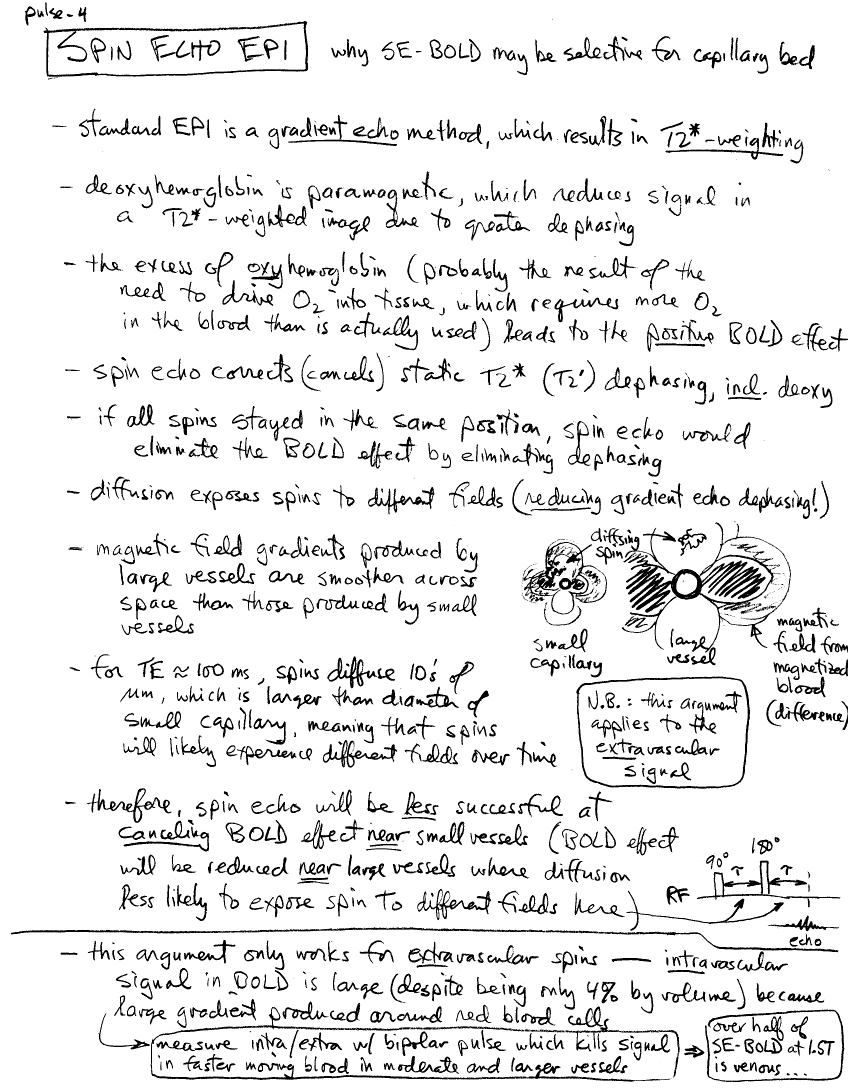 pulse-4
SPIN ECHO EPI why SE-BOLD may be selective for capillary bed
- standard EPI is a gradient echo method, which results in T2*-weighting
- deoxyhemoglobin is paramagnetic, which reduces signal in
a T2*-weighted image due to greater dephasing
- the excess of oxyhemoglobin (probably the result of the
need to drive O2 into tissue, which requires more O2
in the blood than is actually used) leads to the positive BOLD effect
- spin echo corrects (cancels) static T2* (T2') dephasing, incl. deoxy
- if all spins stayed in the same position, spin echo would
eliminate the BOLD effect by eliminating dephasing
- diffusion exposes spins to different fields (reducing gradient echo dephasing!)
- magnetic field gradients produced by
large vessels are smoother across
space than those produced by small
vessels
diffsing
spin
small
capillary
large
vessel
magnetic
field from
magnetized
blood
(difference)
- for TE ≈ 100 ms, spins diffuse 10's of
μm, which is larger than diameter of
small capillary, meaning that spins
will likely experience different fields over time
N.B.: this argument
applies to the
extravascular
signal
- therefore, spin echo will be less successful at
canceling BOLD effect near small vessels (BOLD effect
will be reduced near large vessels where diffusion
less likely to expose spin to different fields here)
90° 180°
τ τ
RF
echo
- this argument only works for extravascular spins — intravascular
signal in BOLD is large (despite being only 4% by volume) because
large gradient produced around red blood cells
→ measure intra/extra w/ bipolar pulse which kills signal
in faster moving blood in moderate and larger vessels
⇒ over half of
SE-BOLD at 1.5T
is venous...